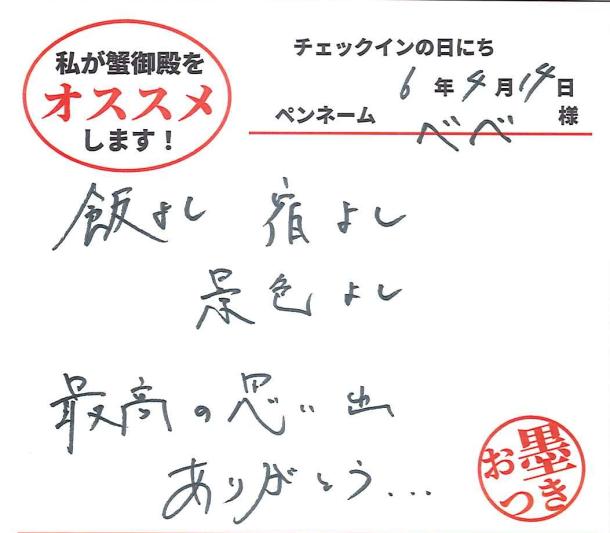 私が蟹御殿を
オススメ
します！
チェックインの日にち
6年4月14日
ペンネーム べべ 様
飯よし 宿よし
景色よし
最高の思い出
ありがとう...
お墨
つき